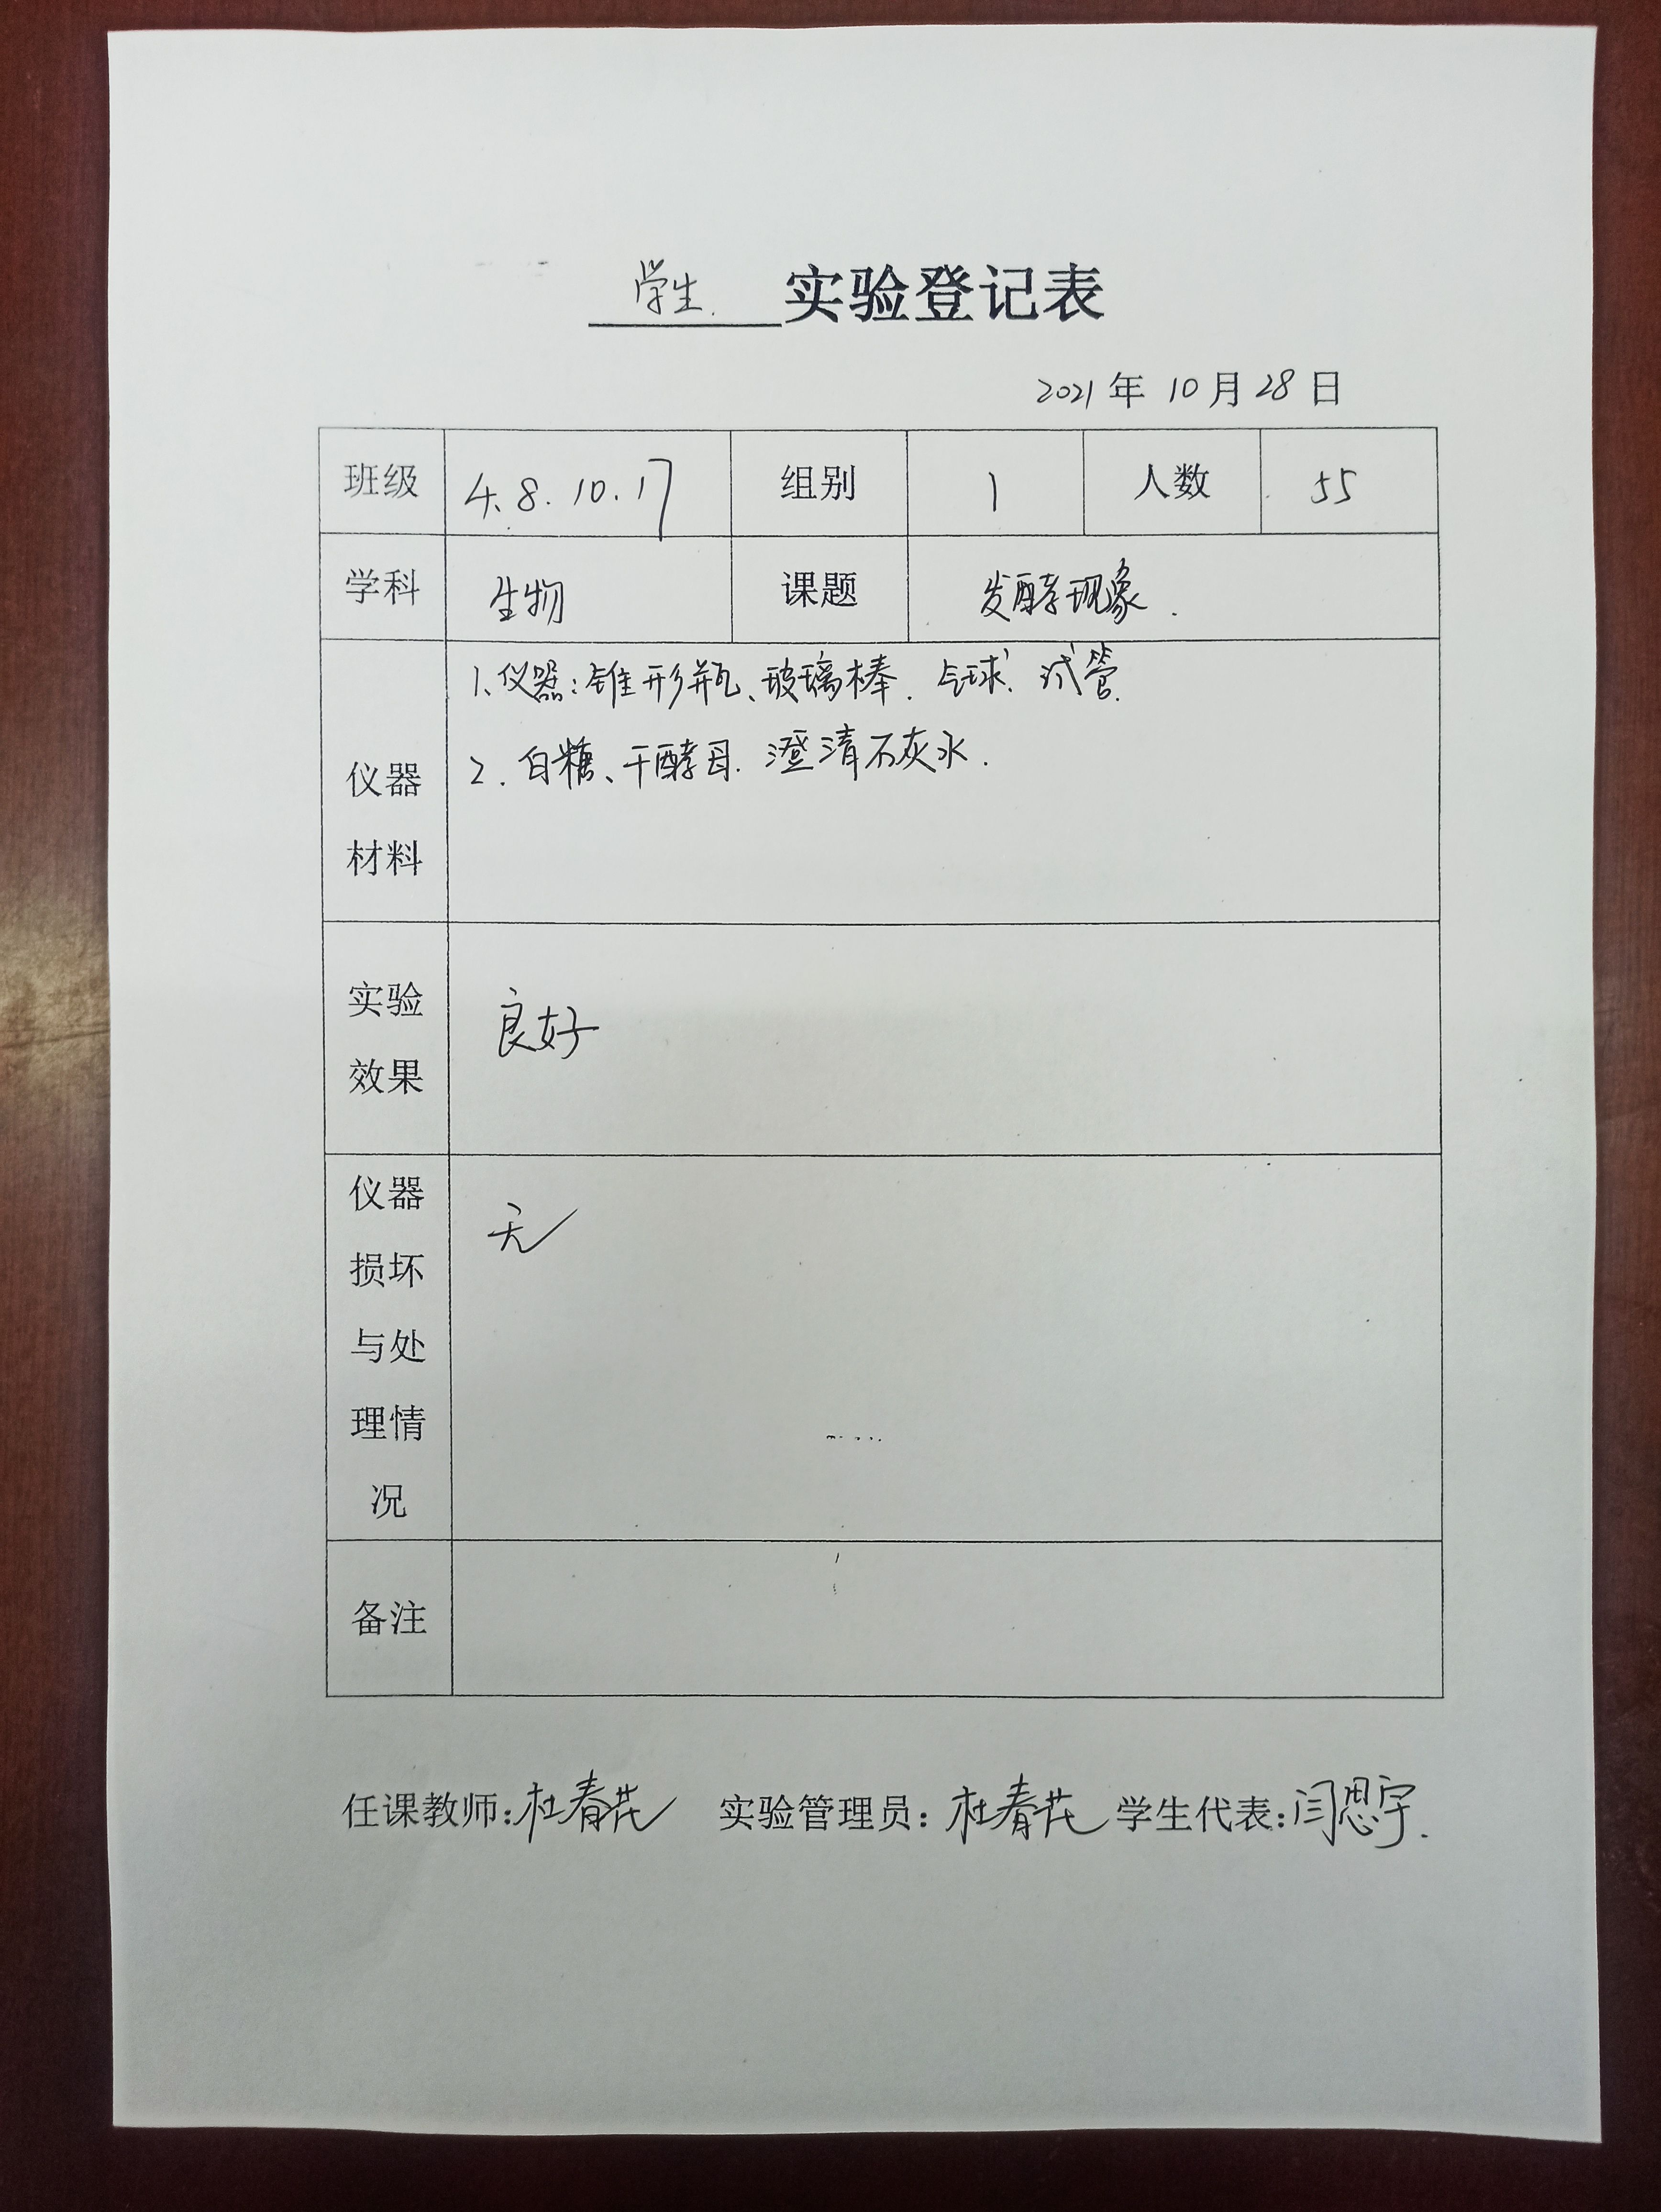 学生 实验登记表
2021 年 10 月 28 日
班级 4.8.10.17 组别 1 人数 55
学科 生物 课题 发酵现象.
仪器材料
1.仪器:锥形瓶、玻璃棒. 气球、试管.
2. 白糖、干酵母. 澄清石灰水.
实验效果 良好
仪器损坏与处理情况 无
备注
任课教师:杜春花 实验管理员:杜春花 学生代表:闫思宇.